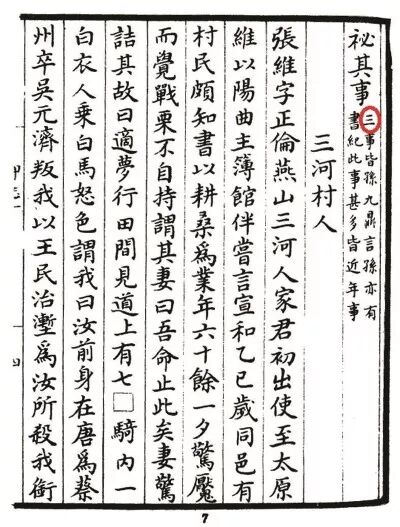 祕其事三事皆孫九鼎言孫亦有
書紀此事甚多皆近年事
三河村人
張維字正倫燕山三河人家君初出使至太原
維以陽曲主簿館伴嘗言宣和乙巳歲同邑有
村民頗知書以耕桑爲業年六十餘一夕驚魘
而覺戰栗不自持謂其妻曰吾命止此矣妻驚
詰其故曰適夢行田間見道上有七□騎内一
白衣人乘白馬怒色謂我曰汝前身在唐爲蔡
州卒吳元濟叛我以王民治壍爲汝所殺我銜
7